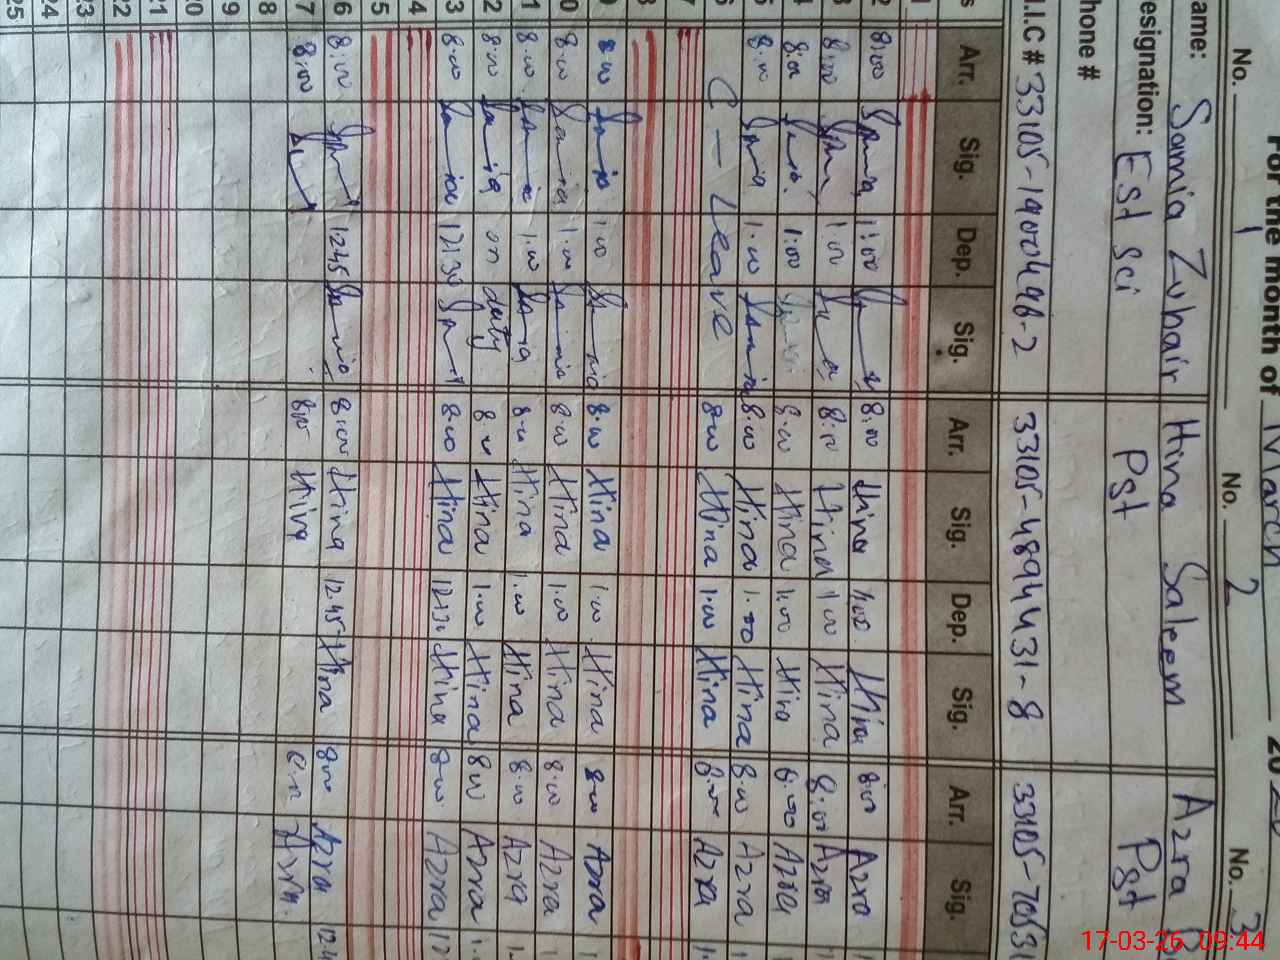 For the month of March 20
No. 1 No. 2 No. 3
ame: Samia Zuhair Hina Saleem Azra
esignation: Est Sci Pst Pst
hone #
.I.C # 33105-1900498-2 33105-4894431-8
s Arr. Sig. Dep. Sig. Arr. Sig. Dep. Sig. Arr. Sig.
1
2 8:00 Samia 1:00 8:00 Hina 1:00 Hina 8:00 Azra
3 8:00 1:00 8:00 Hina 1:00 Hina 8:00 Azra
4 8:00 1:00 8:00 Hina 1:00 Hina 8:00 Azra
5 8:00 Samia 1:00 Samia 8:00 Hina 1:00 Hina 8:00 Azra
6 C - Leave 8:00 Hina 1:00 Hina 8:00 Azra
7
8
9 8:00 Samia 1:00 Samia 8:00 Hina 1:00 Hina 8:00 Azra
10 8:00 Samia 1:00 Samia 8:00 Hina 1:00 Hina 8:00 Azra
11 8:00 Samia 1:00 Samia 8:00 Hina 1:00 Hina 8:00 Azra
12 8:00 Samia on duty 8:00 Hina 1:00 Hina 8:00 Azra
13 8:00 Samia 12:30 8:00 Hina 12:30 Hina 8:00 Azra 12
14
15
16 8:00 12:45 Samia 8:00 Hina 12:45 Hina 8:00 Azra 12:4
17 8:00 8:00 Hina Azra
18
19
20
21
22
23
24
25
17-03-26 09:44